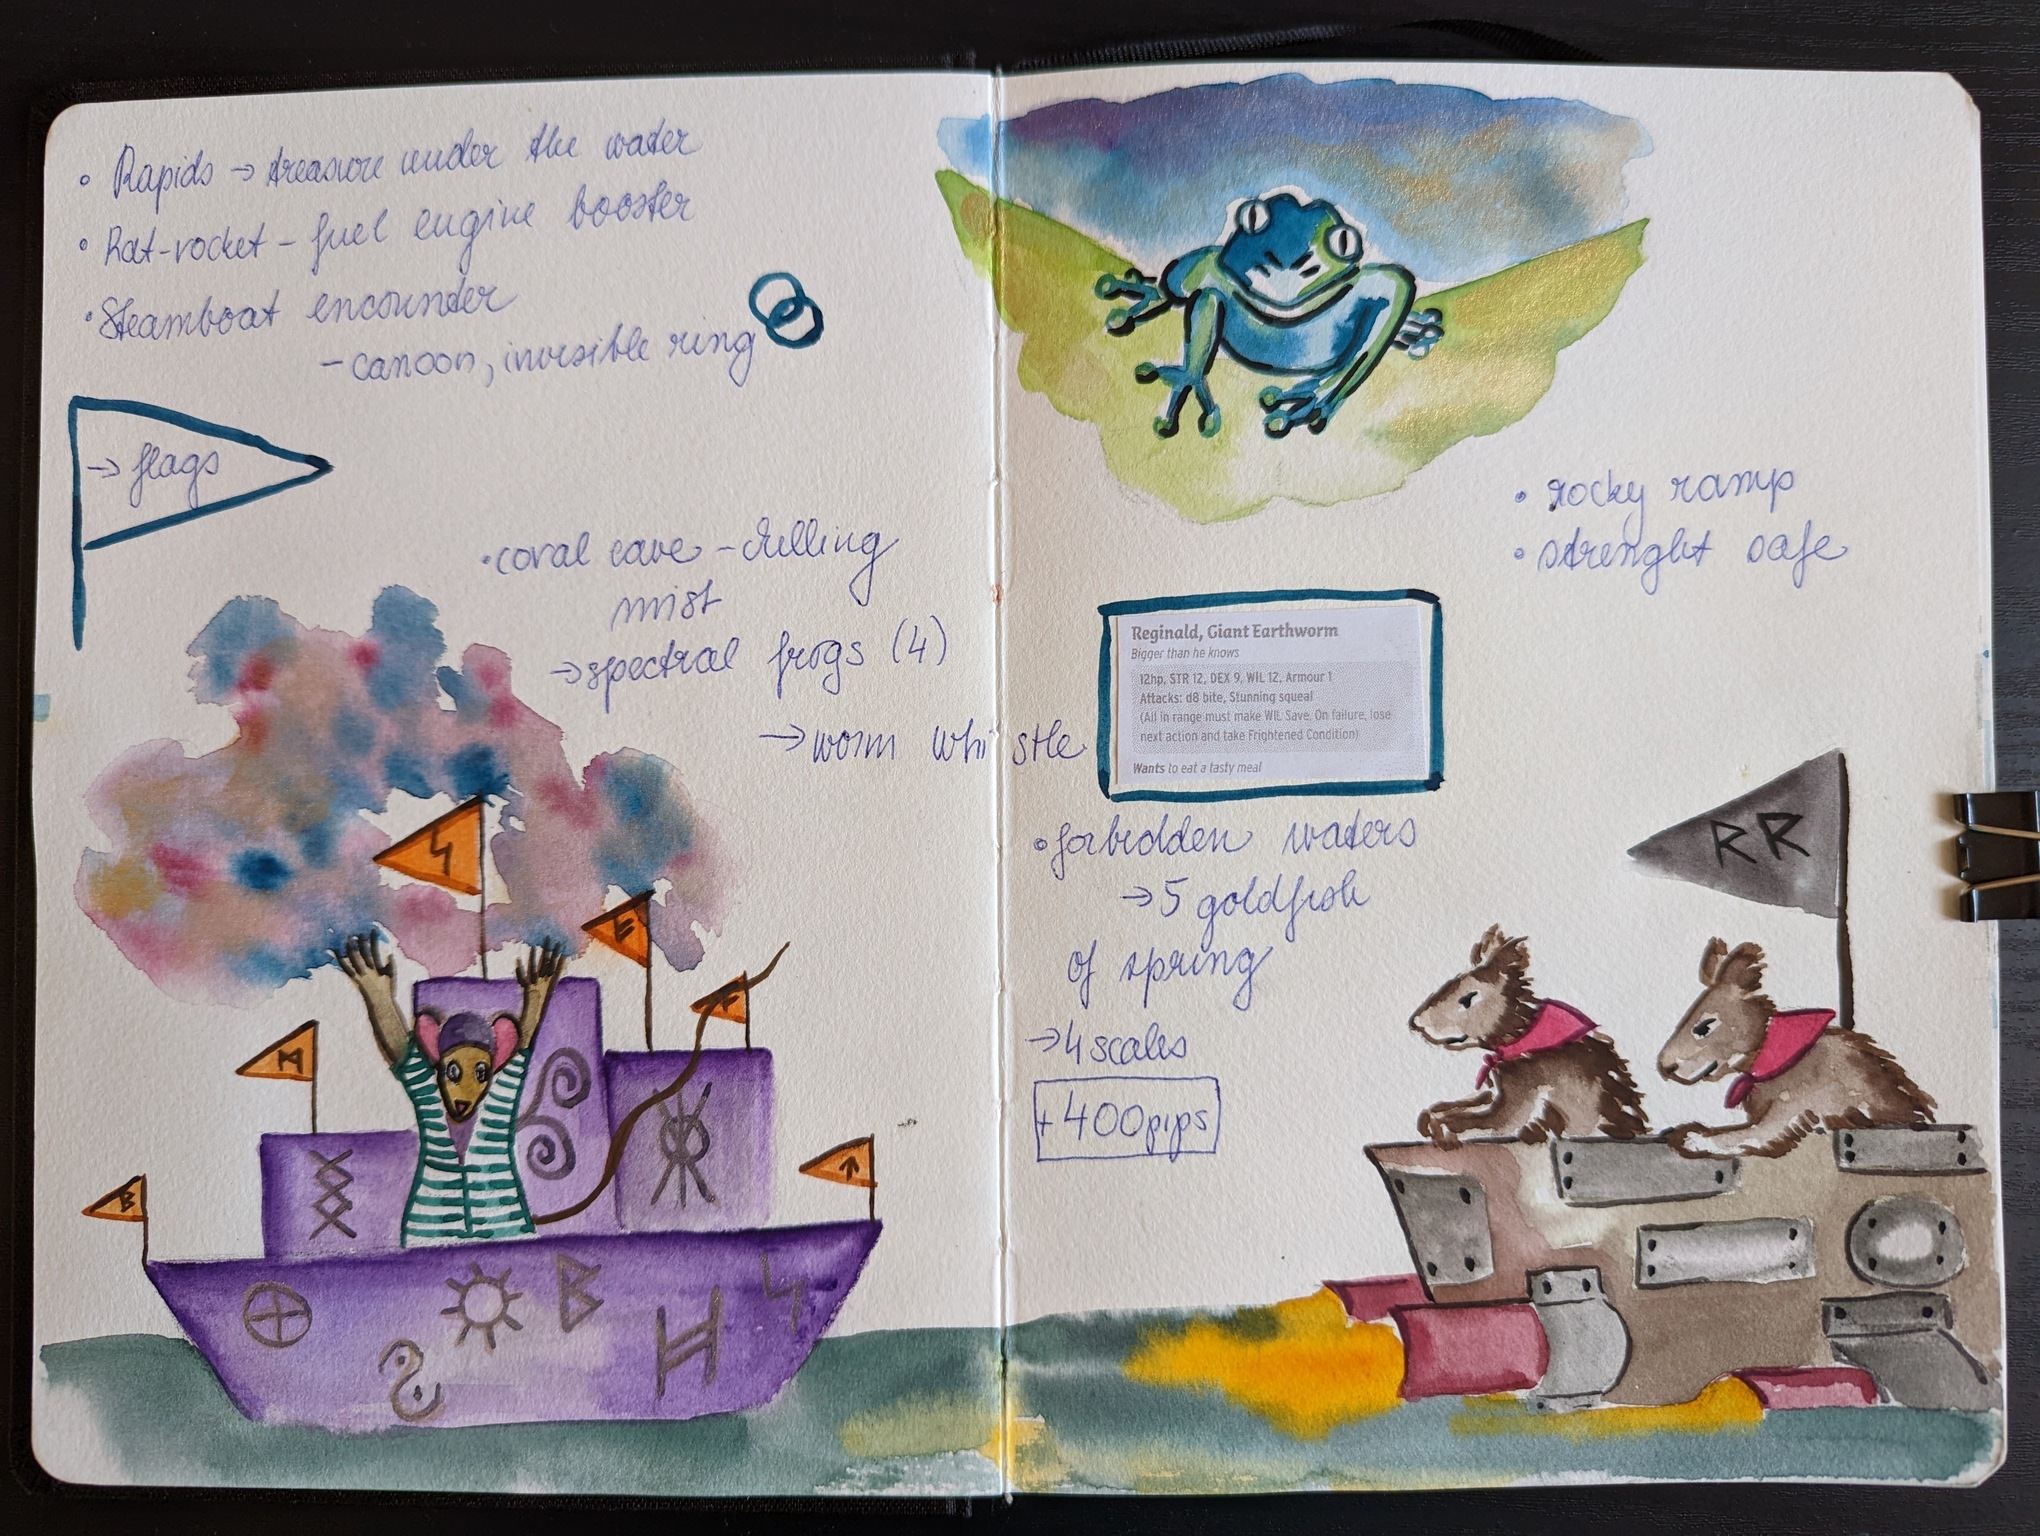 • Rapids → treasure under the water
• Rat-rocket - fuel engine booster
• Steamboat encounter
- canoon, invisible ring
→ flags
• coral cave - chilling
mist
→ spectral frogs (4)
→ worm whistle
• rocky ramp
• strenght safe
Reginald, Giant Earthworm
Bigger than he knows
12hp, STR 12, DEX 9, WIL 12, Armour 1
Attacks: d8 bite, Stunning squeal
(All in range must make WIL Save. On failure, lose
next action and take Frightened Condition)
Wants to eat a tasty meal
• forbidden waters
→ 5 goldfish
of spring
→ 4 scales
+ 400 pips
RR